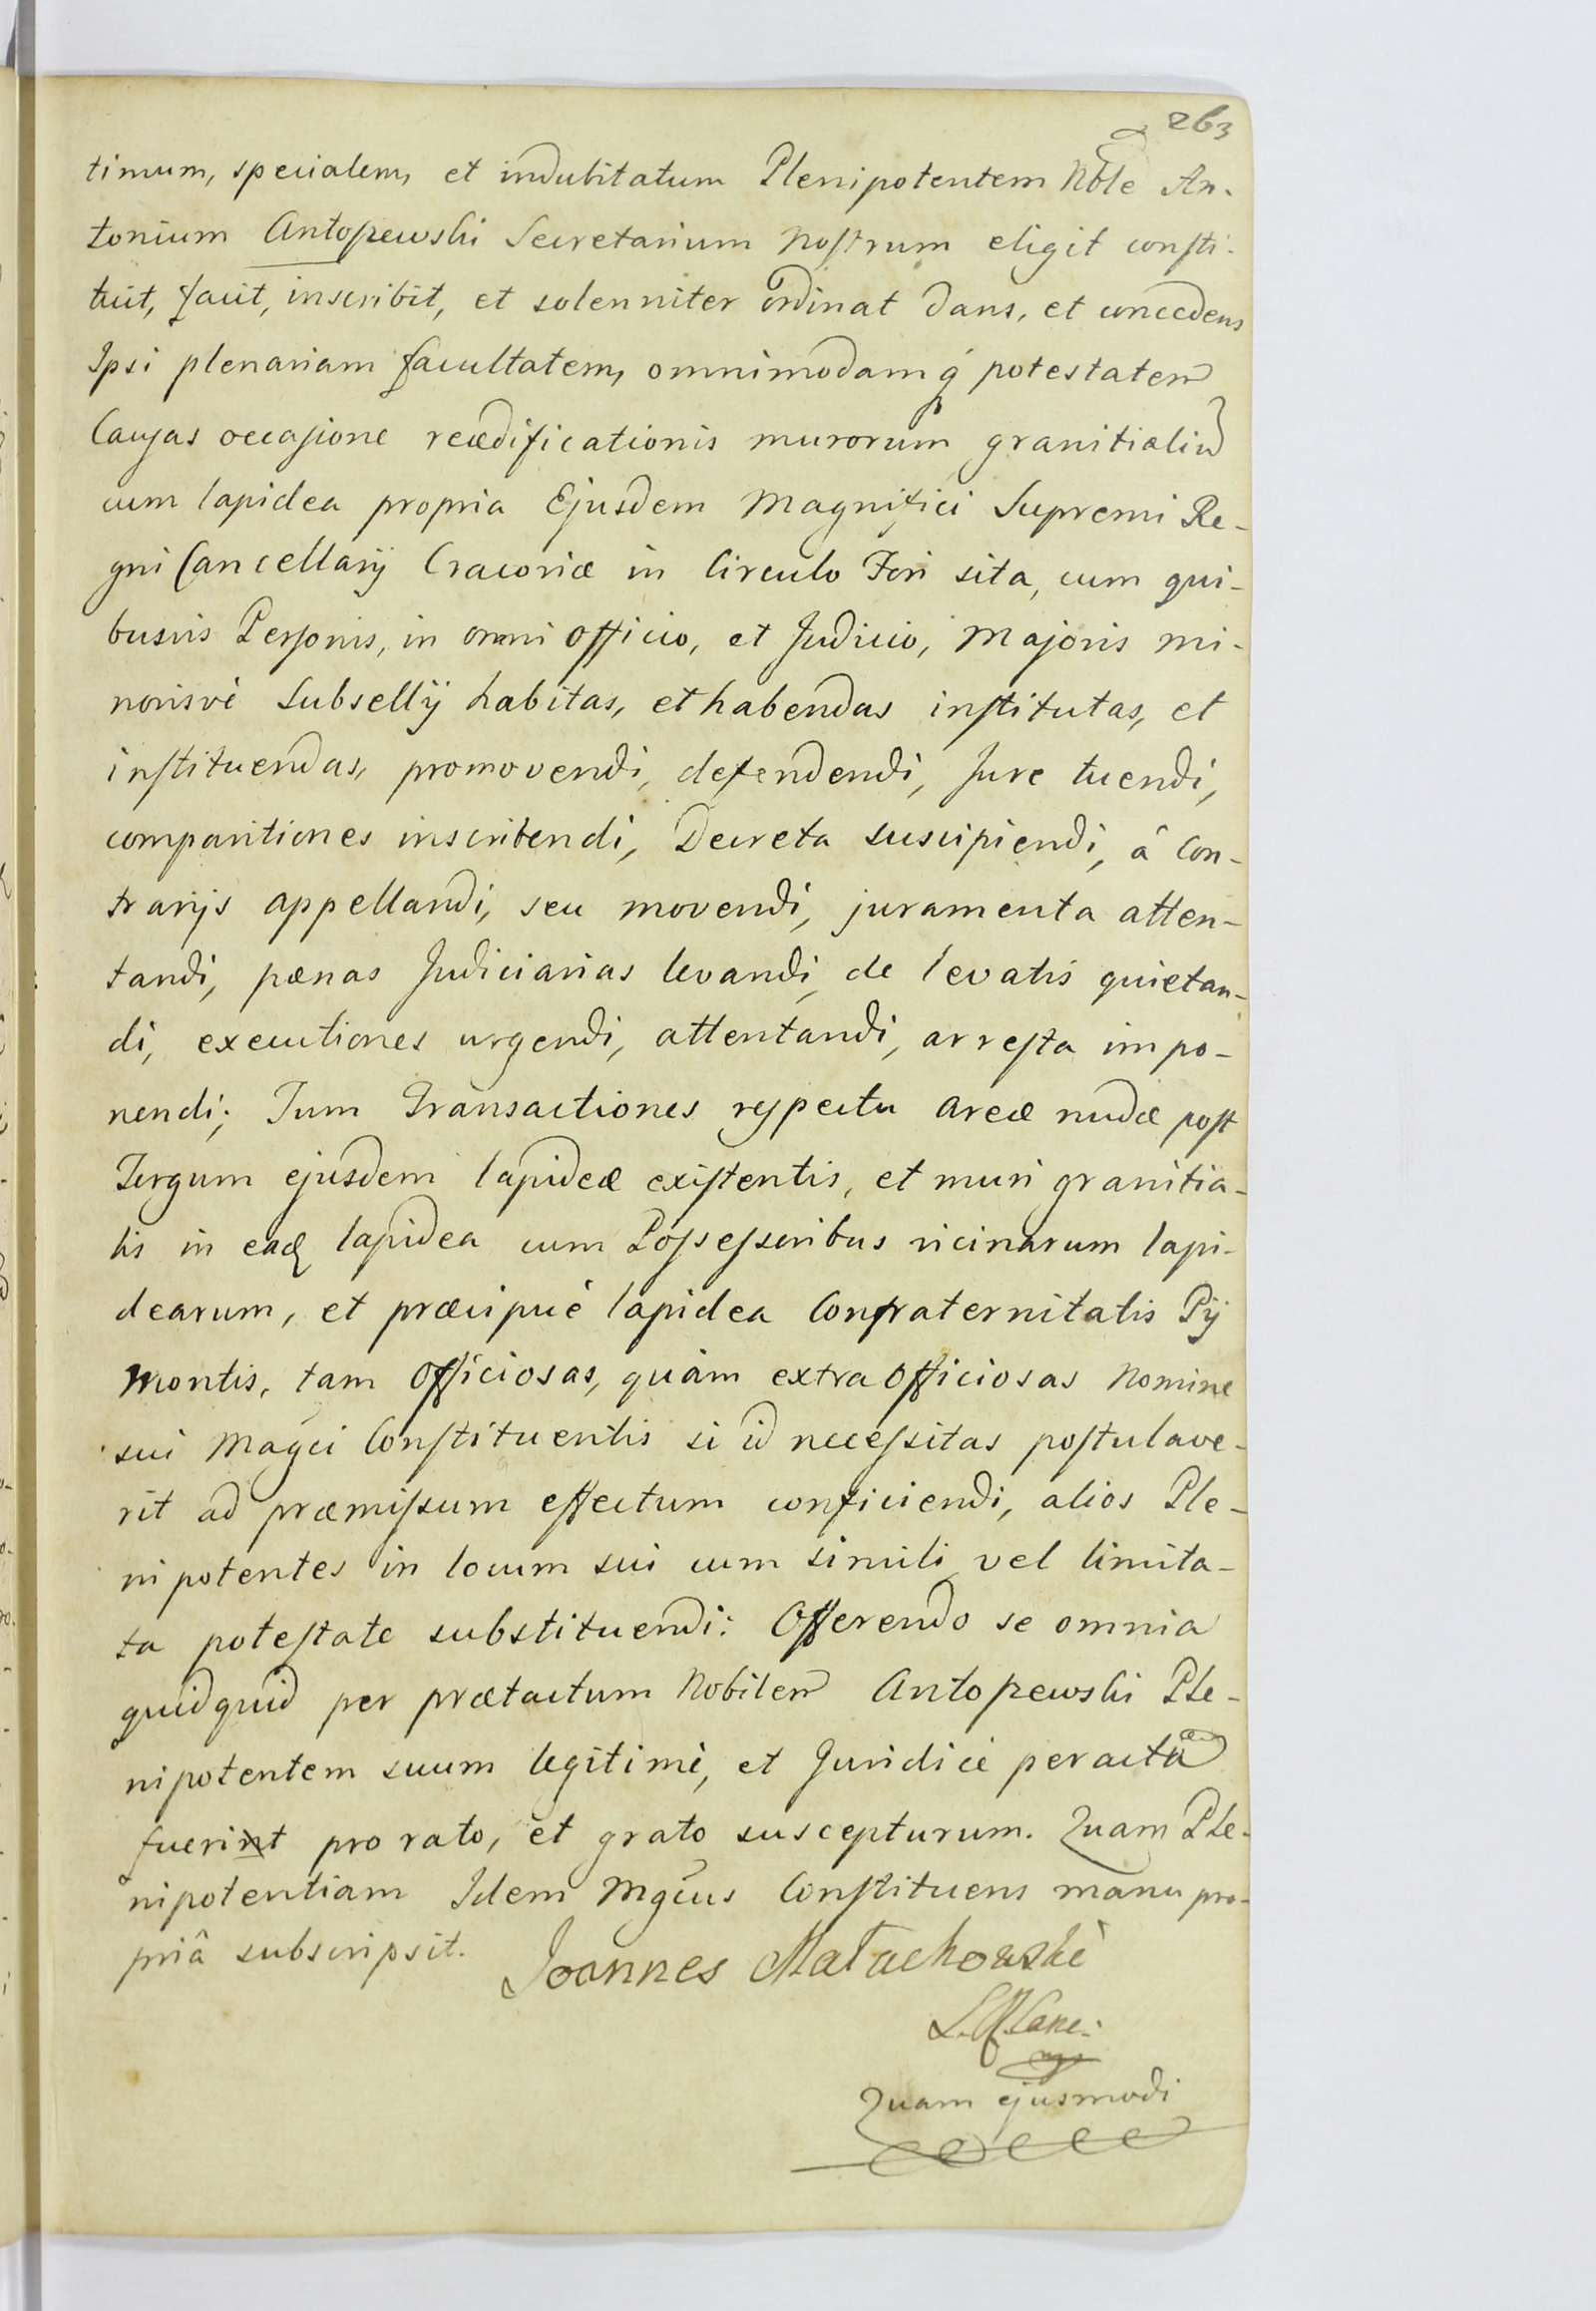 263
timum, specialem, et indubitatum Plenipotentem Nble An-
tonium Antoszewski Secretarium Nostrum eligit consti-
tuit, facit, inscribit, et solenniter ordinat dans, et concedens
Ipsi plenariam facultatem, omnimodamq́ potestatem
Causas occasione reædificationis murorum granitialiu
cum lapidea propria Ejusdem Magnifici Supremi Re-
gni Cancellarij Cracoviæ in Circulo Fori sita, cum qui-
busvis Personis, in omni officio, et Judicio, Majoris mi-
norisvè Subsellij habitas, et habendas institutas, et
instituendas, promovendi, defendendi, Jure tuendi,
comparitiones inscribendi, Decreta suscipiendi, â Con-
trarijs appellandi, seu movendi, juramenta atten-
tandi, pænas Judiciarias levandi, de levatis quietan-
di, executiones urgendi, attentandi, arresta impo-
nendi; Tum Transactiones respectu areæ nudæ post
Tergum ejusdem lapideæ existentis, et muri granitia-
lis in eadꝫ lapidea cum Possessoribus vicinarum lapi-
dearum, et præcipuè lapidea Confraternitatis Pij
Montis, tam Officiosas, quàm extra Officiosas Nomine
sui Magci Constituentis si id necessitas postulave-
rit ad præmissum effectum conficiendi, alios Ple-
nipotentes in locum sui cum simili vel limita-
ta potestate substituendi: Offerendo se omnia
quidquid per prætactum Nobilem Antoszewski Ple-
nipotentem suum legitimè, et Juridicè peracta
fuerint pro rato, et grato suscepturum. Quam Ple-
nipotentiam Idem Mgcus Constituens manu pro-
priâ subscripsit. Joannes Małachowski
S. R. Canc:
mp
Quam ejusmodi